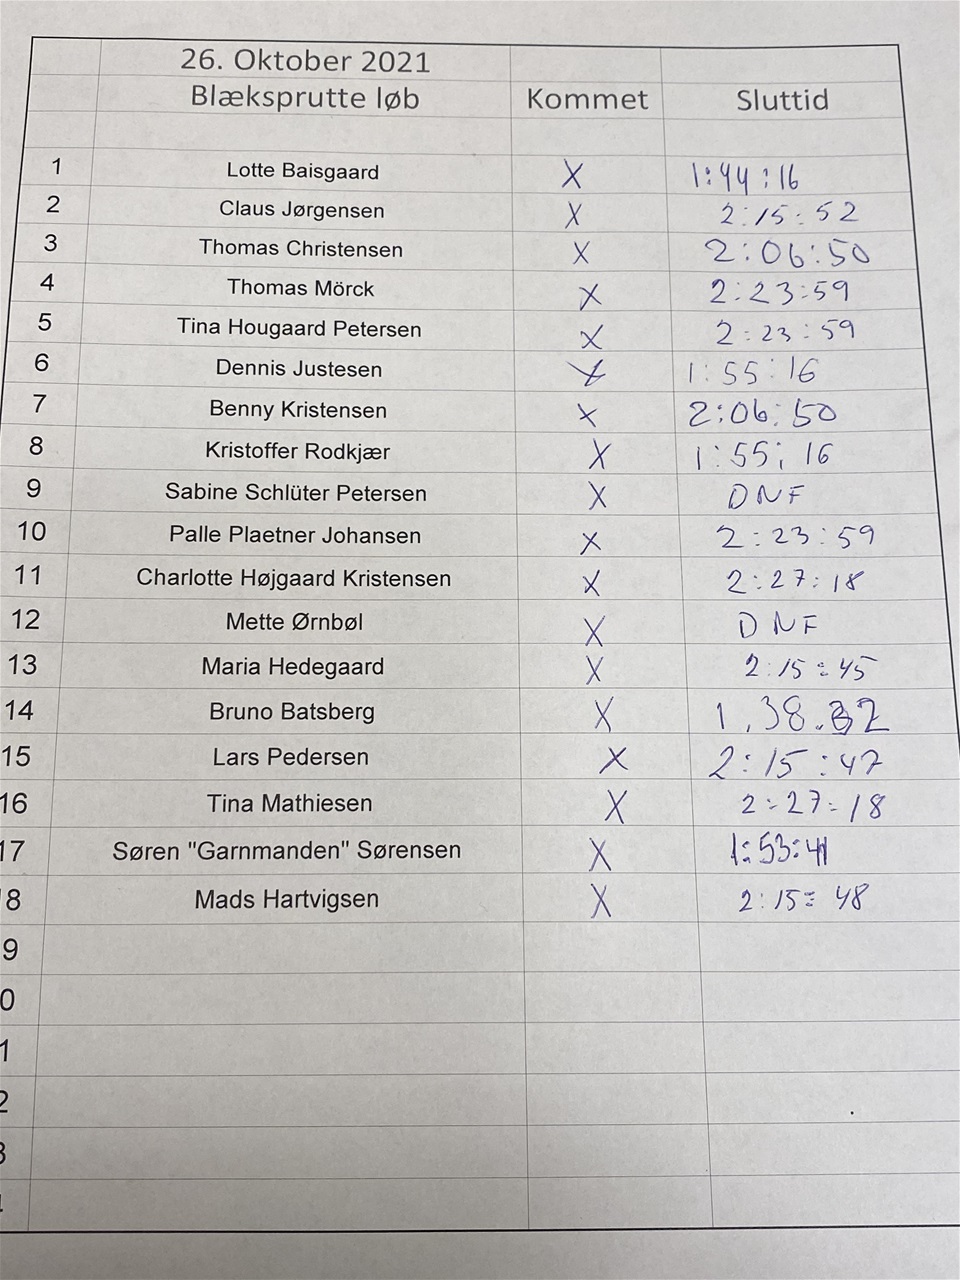 26. Oktober 2021
Blæksprutte løb Kommet Sluttid
1 Lotte Baisgaard X 1:44:16
2 Claus Jørgensen X 2:15:52
3 Thomas Christensen X 2:06:50
4 Thomas Mörck X 2:23:59
5 Tina Hougaard Petersen X 2:23:59
6 Dennis Justesen X 1:55:16
7 Benny Kristensen X 2:06:50
8 Kristoffer Rodkjær X 1:55:16
9 Sabine Schlüter Petersen X DNF
10 Palle Plaetner Johansen X 2:23:59
11 Charlotte Højgaard Kristensen X 2:27:18
12 Mette Ørnbøl X DNF
13 Maria Hedegaard X 2:15:45
14 Bruno Batsberg X 1.38.32
15 Lars Pedersen X 2:15:47
16 Tina Mathiesen X 2:27:18
17 Søren "Garnmanden" Sørensen X 1:53:41
8 Mads Hartvigsen X 2:15:48
9
0
1
2
3